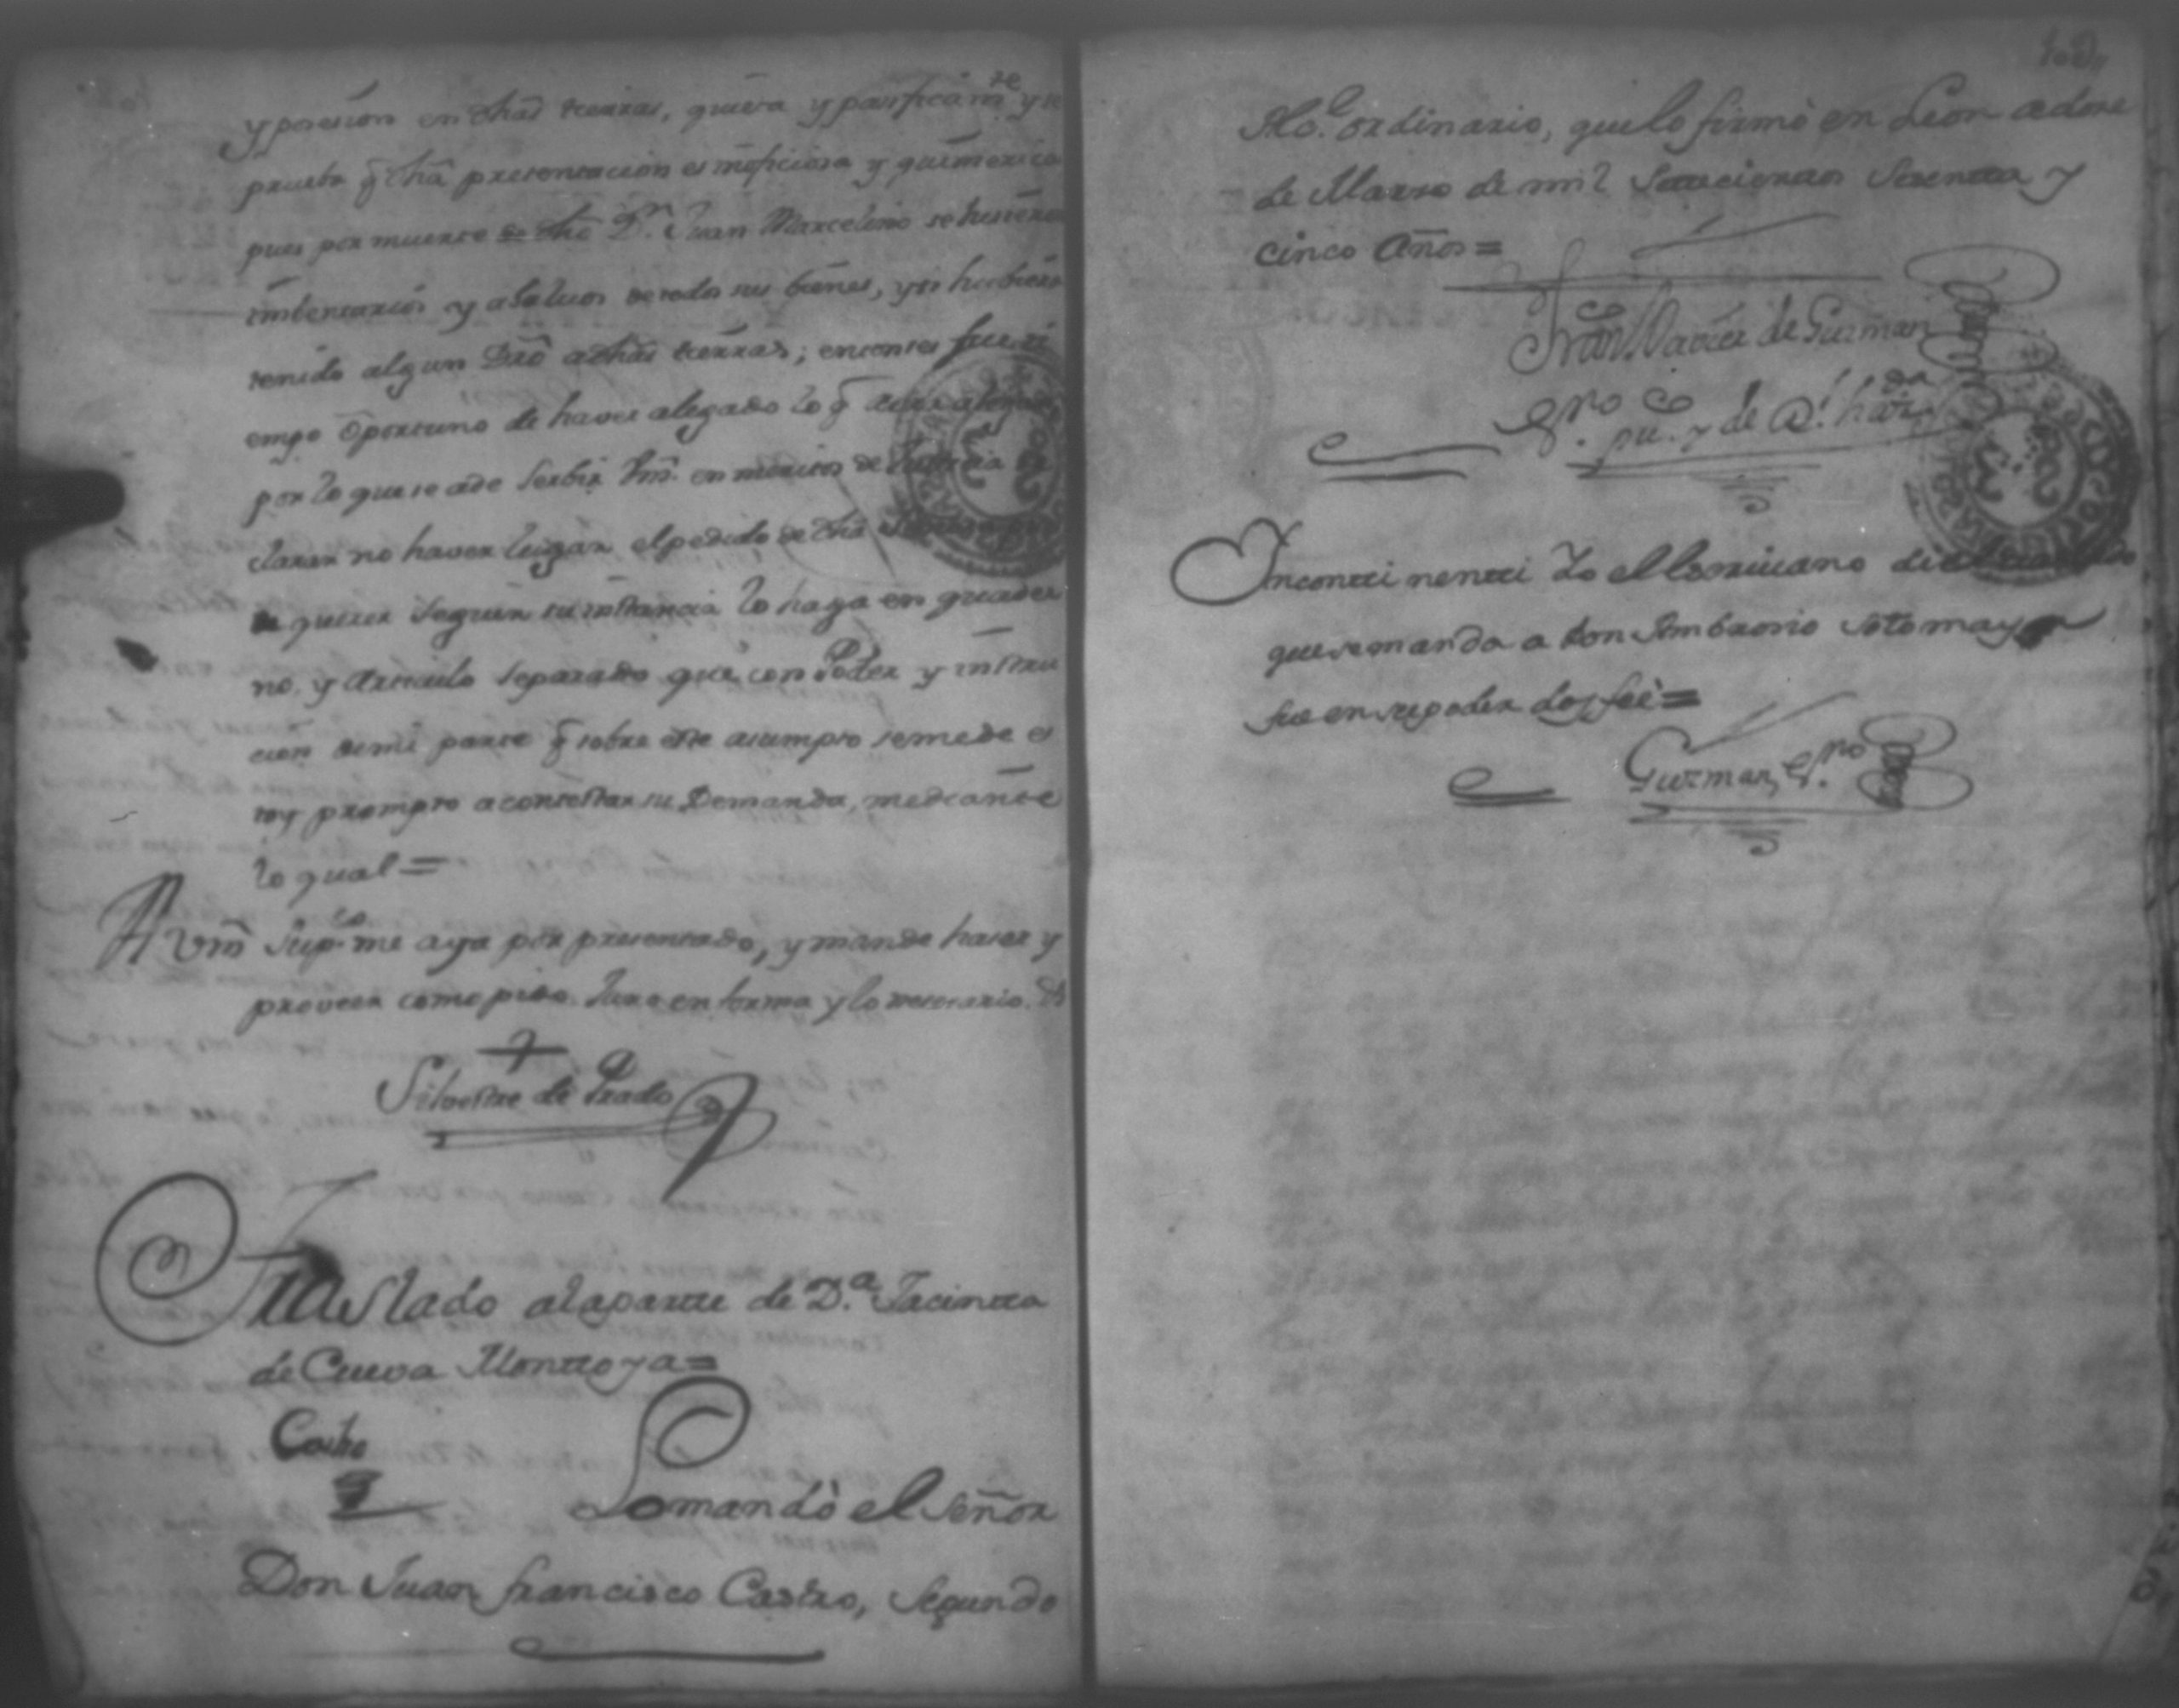 y posecion en dhas tierras, quieta y pacificamte y se
prueba q̃ dha presentacion es inoficiosa y quimerica
pues por muerte de dho Dn. Juan Marcelino se hisieron
imbentarios y abaluos de todos sus bienes, y si hubiera
tenido algun Dro̅ a dhas tierras; entonces fue ti
empo oportuno de haver alegado lo q̃
por lo que se a de serbir Vm̃. en meritos de Justicia de
clarar no haver lugar el pedido de dha
de querer seguir su instancia lo haga en quader
no, y Articulo separado que con Poder y instru
cion de mi parte q̃ sobre este asumpto se me de es
toy prompto a contestar su Demanda, mediante
lo qual =
A Vm̃ Supco. me aya por presentado, y mande haser y
proveer como pido. Juro en forma y lo nesesario. &
Silvestre de Prado
Traslado a la parte de D.ª Jacintta
de Cueva Monttoya =
Castro
Lo mandò el Señor
Don Juan Francisco Castro, Segundo
Alce. ordinario, que lo firmò en Leon a dose
de Marso de mil Settecienttos Setentta y
cinco Años =
Franco. Xavier de Guzman
Sno. pũco. y de Rl. hazda
Incontti nentti Yo el Escriuano di el traslado
que se manda a Don Ambrosio Sotomayor
fue en su poder doy feè =
Guzman, Sno.